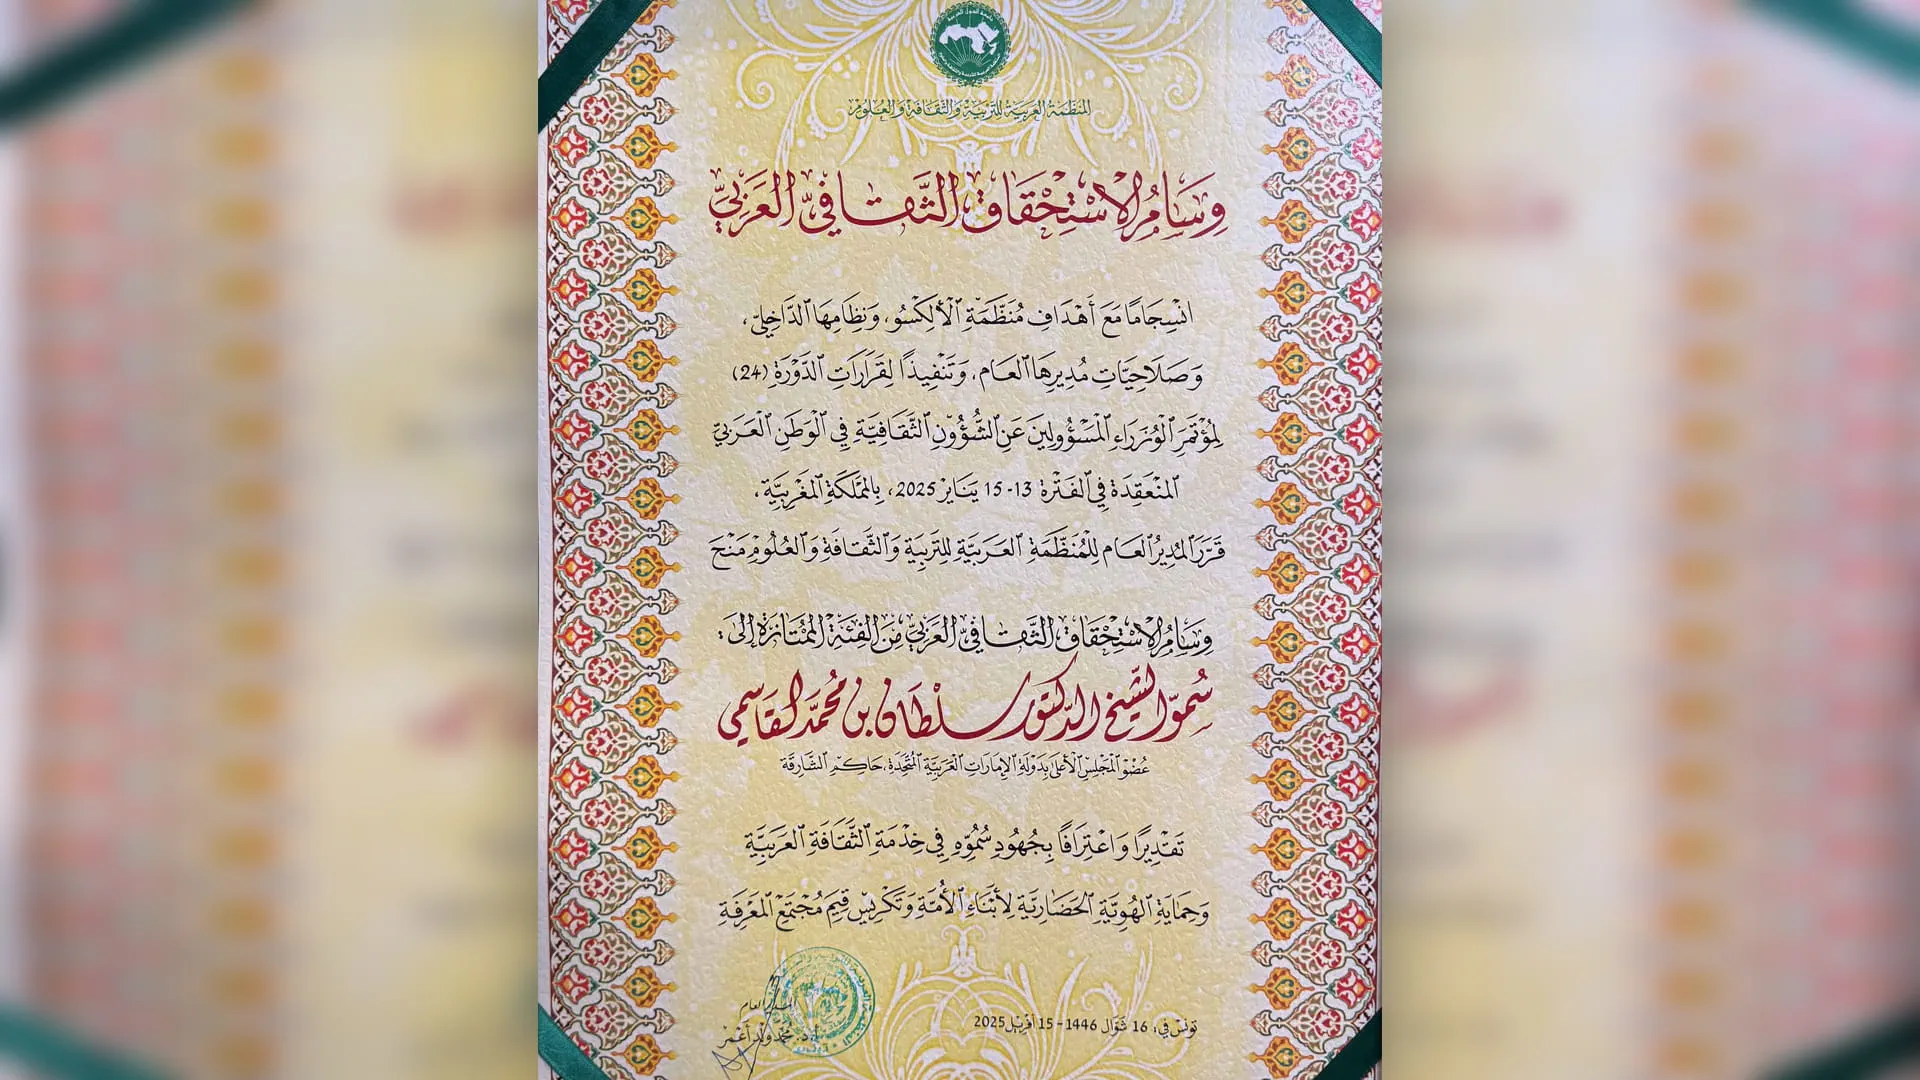 جامعة الدول العربية
المنظمة العربية للتربية والثقافة والعلوم
المُنَظَّمَةُ العَرَبِيَّةُ لِلتَّرْبِيَةِ وَالثَّقَافَةِ وَالعُلُومْ
وِسَامُ الاسْتِحْقَاقِ الثَّقَافِيِّ العَرَبِيِّ
انْسِجَامًا مَعَ أَهْدَافِ مُنَظَّمَةِ الْأَلِكْسُو، وَنِظَامِهَا الدَّاخِلِيِّ،
وَصَلَاحِيَّاتِ مُدِيرِهَا العَام، وَتَنْفِيذًا لِقَرَارَاتِ الدَّوْرَةِ (24)
لِمُؤْتَمَرِ الْوُزَرَاءِ الْمَسْؤُولِينَ عَنِ الشُّؤُوْنِ الثَّقَافِيَّةِ فِي الْوَطَنِ الْعَرَبِيِّ
الْمُنْعَقِدَةِ فِي الْفَتْرَةِ 13-15 يَنَايْر 2025، بِالمَمْلَكَةِ الْمَغْرِبِيَّةِ،
قَرَّرَ الْمُدِيرُ الْعَام لِلْمُنَظَّمَةِ الْعَرَبِيَّةِ لِلتَّرْبِيَةِ وَالثَّقَافَةِ وَالعُلُومِ مَنْحَ
وِسَامِ الاسْتِحْقَاقِ الثَّقَافِيِّ العَرَبِيِّ مِنَ الْفِئَةِ الْمُمْتَازَةِ إِلَى:
سُمُوّ الشَّيْخ الدَّكْتُور سُلْطَان بِن مُحَمَّد القَاسِمِي
عُضْوِ الْمَجْلِسِ الْأَعْلَى بِدَوْلَةِ الْإِمَارَاتِ الْعَرَبِيَّةِ الْمُتَّحِدَةِ، حَاكِمِ الشَّارِقَة
تَقْدِيرًا وَاعْتِرَافًا بِجُهُودِ سُمُوِّهِ فِي خِدْمَةِ الثَّقَافَةِ الْعَرَبِيَّةِ
وَحِمَايَةِ الْهُوِيَّةِ الْحَضَارِيَّةِ لِأَبْنَاءِ الْأُمَّةِ وَتَكْرِيسِ قِيَمِ مُجْتَمَعِ الْمَعْرِفَةِ
تونس في: 16 شَوَّال 1446 - 15 أفْرِيل 2025
المدير العام
أ.د. محمد ولد أعمر